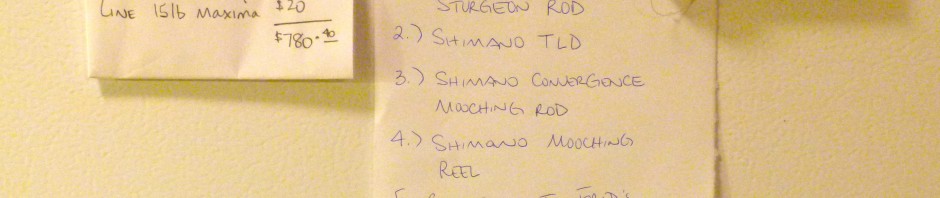 LINE 15lb MAXIMA $20
$780.40
STURGEON ROD
2.) SHIMANO TLD
3.) SHIMANO CONVERGENCE
MOOCHING ROD
4.) SHIMANO MOOCHING
REEL